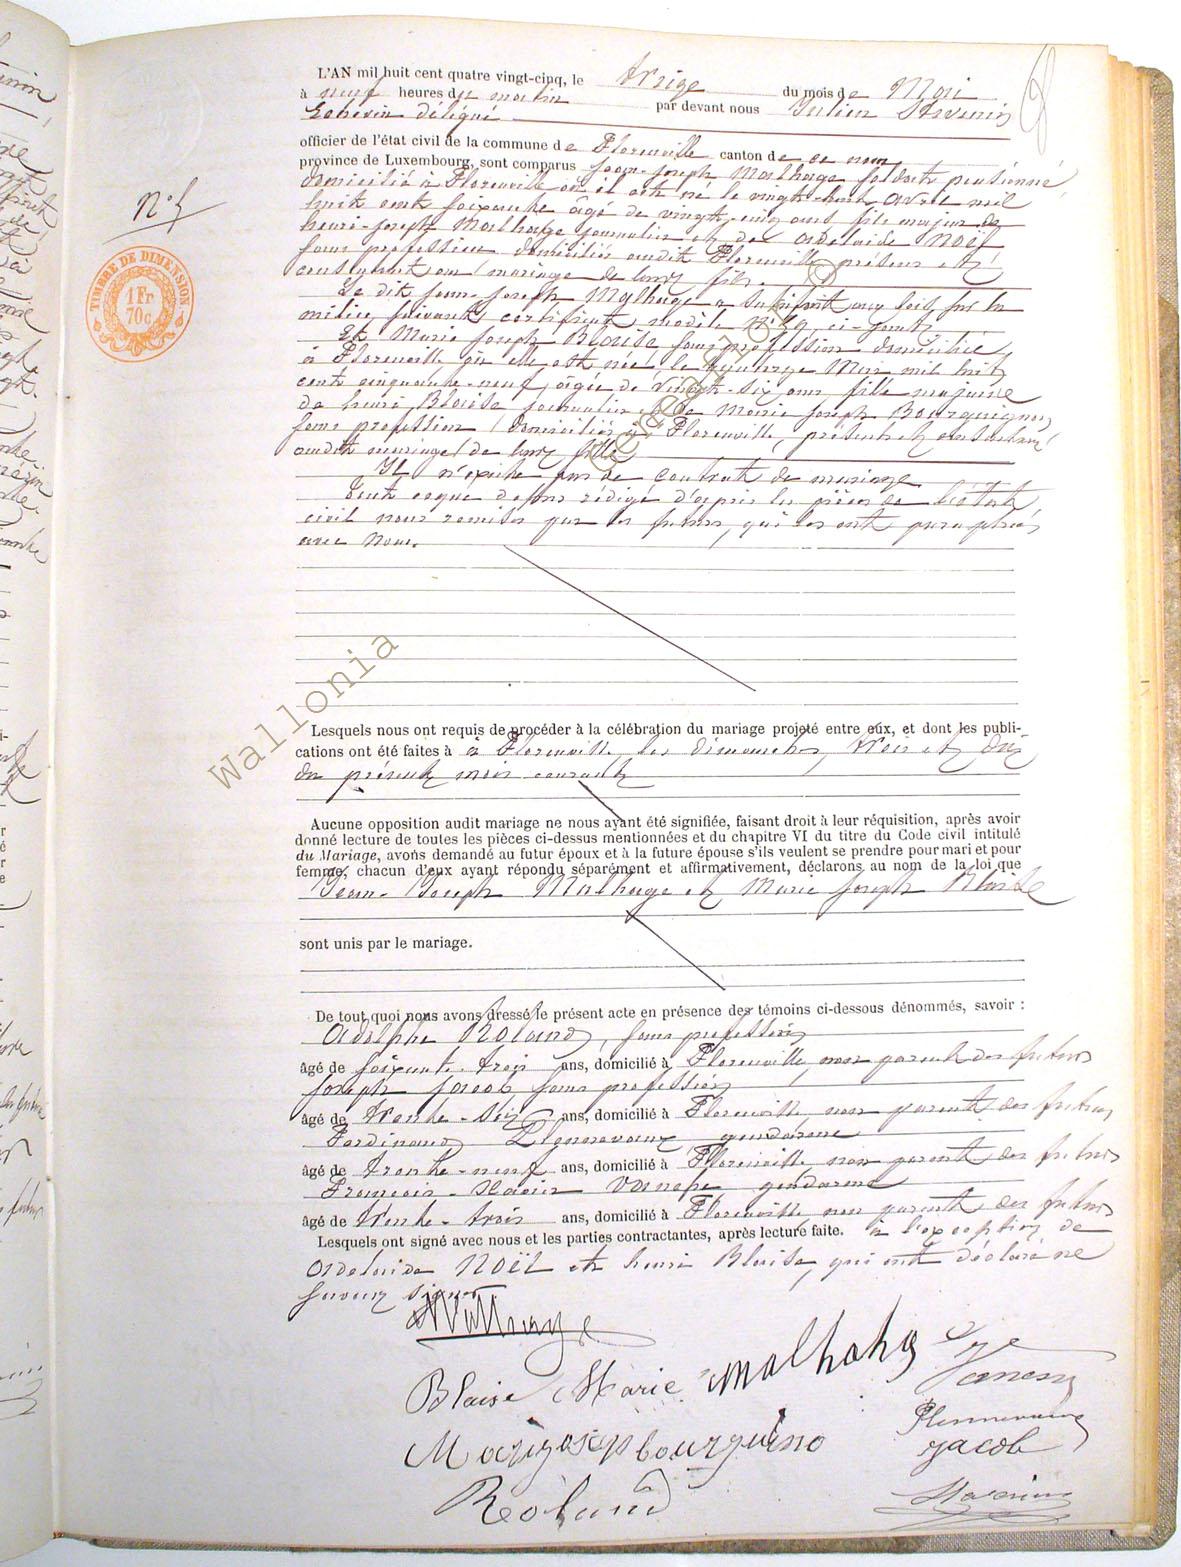 L'AN mil huit cent quatre vingt-cinq, le treize du mois de Mai
à neuf heures du matin par devant nous Julien
Echevin délégué
officier de l'état civil de la commune de Florenville canton de ce nom
province de Luxembourg, sont comparus Jean-Joseph Malhage soldat pensionné
domicilié à Florenville où il est né le vingt-huit avril mil
huit cent soixante âgé de vingt-cinq ans fils majeur de
henri-Joseph Malhage journalier et de Adelaïde Noël
sans profession domiciliés audit Florenville présens et
consentant au mariage de leur fils.
Le dit Jean-Joseph Malhage a satisfait aux lois sur la
milice suivant certificat modèle ci-joint.
Et Marie Joseph Blaise sans profession domiciliée
à Florenville où elle est née le quinze Mars mil huit
cent cinquante-neuf, âgée de vingt-six ans fille majeure
de henri Blaise journalier et de Marie Joseph Bourguignon
sans profession domiciliés à Florenville, présents et consentant
audit mariage de leur fille
Il n'existe pas de contrat de mariage
Tout ceque dessus rédigé d'après les pièces de l'état
civil nous remises par les futurs, qui les ont paraphées
avec nous.
N° 5
TIMBRE DE DIMENSION
1 Fr
70c
Wallonia
Lesquels nous ont requis de procéder à la célébration du mariage projeté entre eux, et dont les publi-
cations ont été faites à à Florenville les dimanches, trois et dix
du présent mois courant
Aucune opposition audit mariage ne nous ayant été signifiée, faisant droit à leur réquisition, après avoir
donné lecture de toutes les pièces ci-dessus mentionnées et du chapitre VI du titre du Code civil intitulé
du Mariage, avons demandé au futur époux et à la future épouse s'ils veulent se prendre pour mari et pour
femme, chacun d'eux ayant répondu séparément et affirmativement, déclarons au nom de la loi que
Jean-Joseph Malhage et Marie Joseph Blaise
sont unis par le mariage.
De tout quoi nous avons dressé le présent acte en présence des témoins ci-dessous dénommés, savoir :
Adolphe Roland, sans profession
âgé de soixante trois ans, domicilié à Florenville non parent des futurs
Joseph Jacob sans profession
âgé de trente-six ans, domicilié à Florenville non parent des futurs
Ferdinand gendarme
âgé de trente-neuf ans, domicilié à Florenville non parent des futurs
François-Xavier gendarme
âgé de trente-trois ans, domicilié à Florenville non parent des futurs
Lesquels ont signé avec nous et les parties contractantes, après lecture faite. à l'exception de
Adelaïde Noël et henri Blaise, qui ont déclaré ne
savoir signer.
Blaise Marie
Roland
Jacob